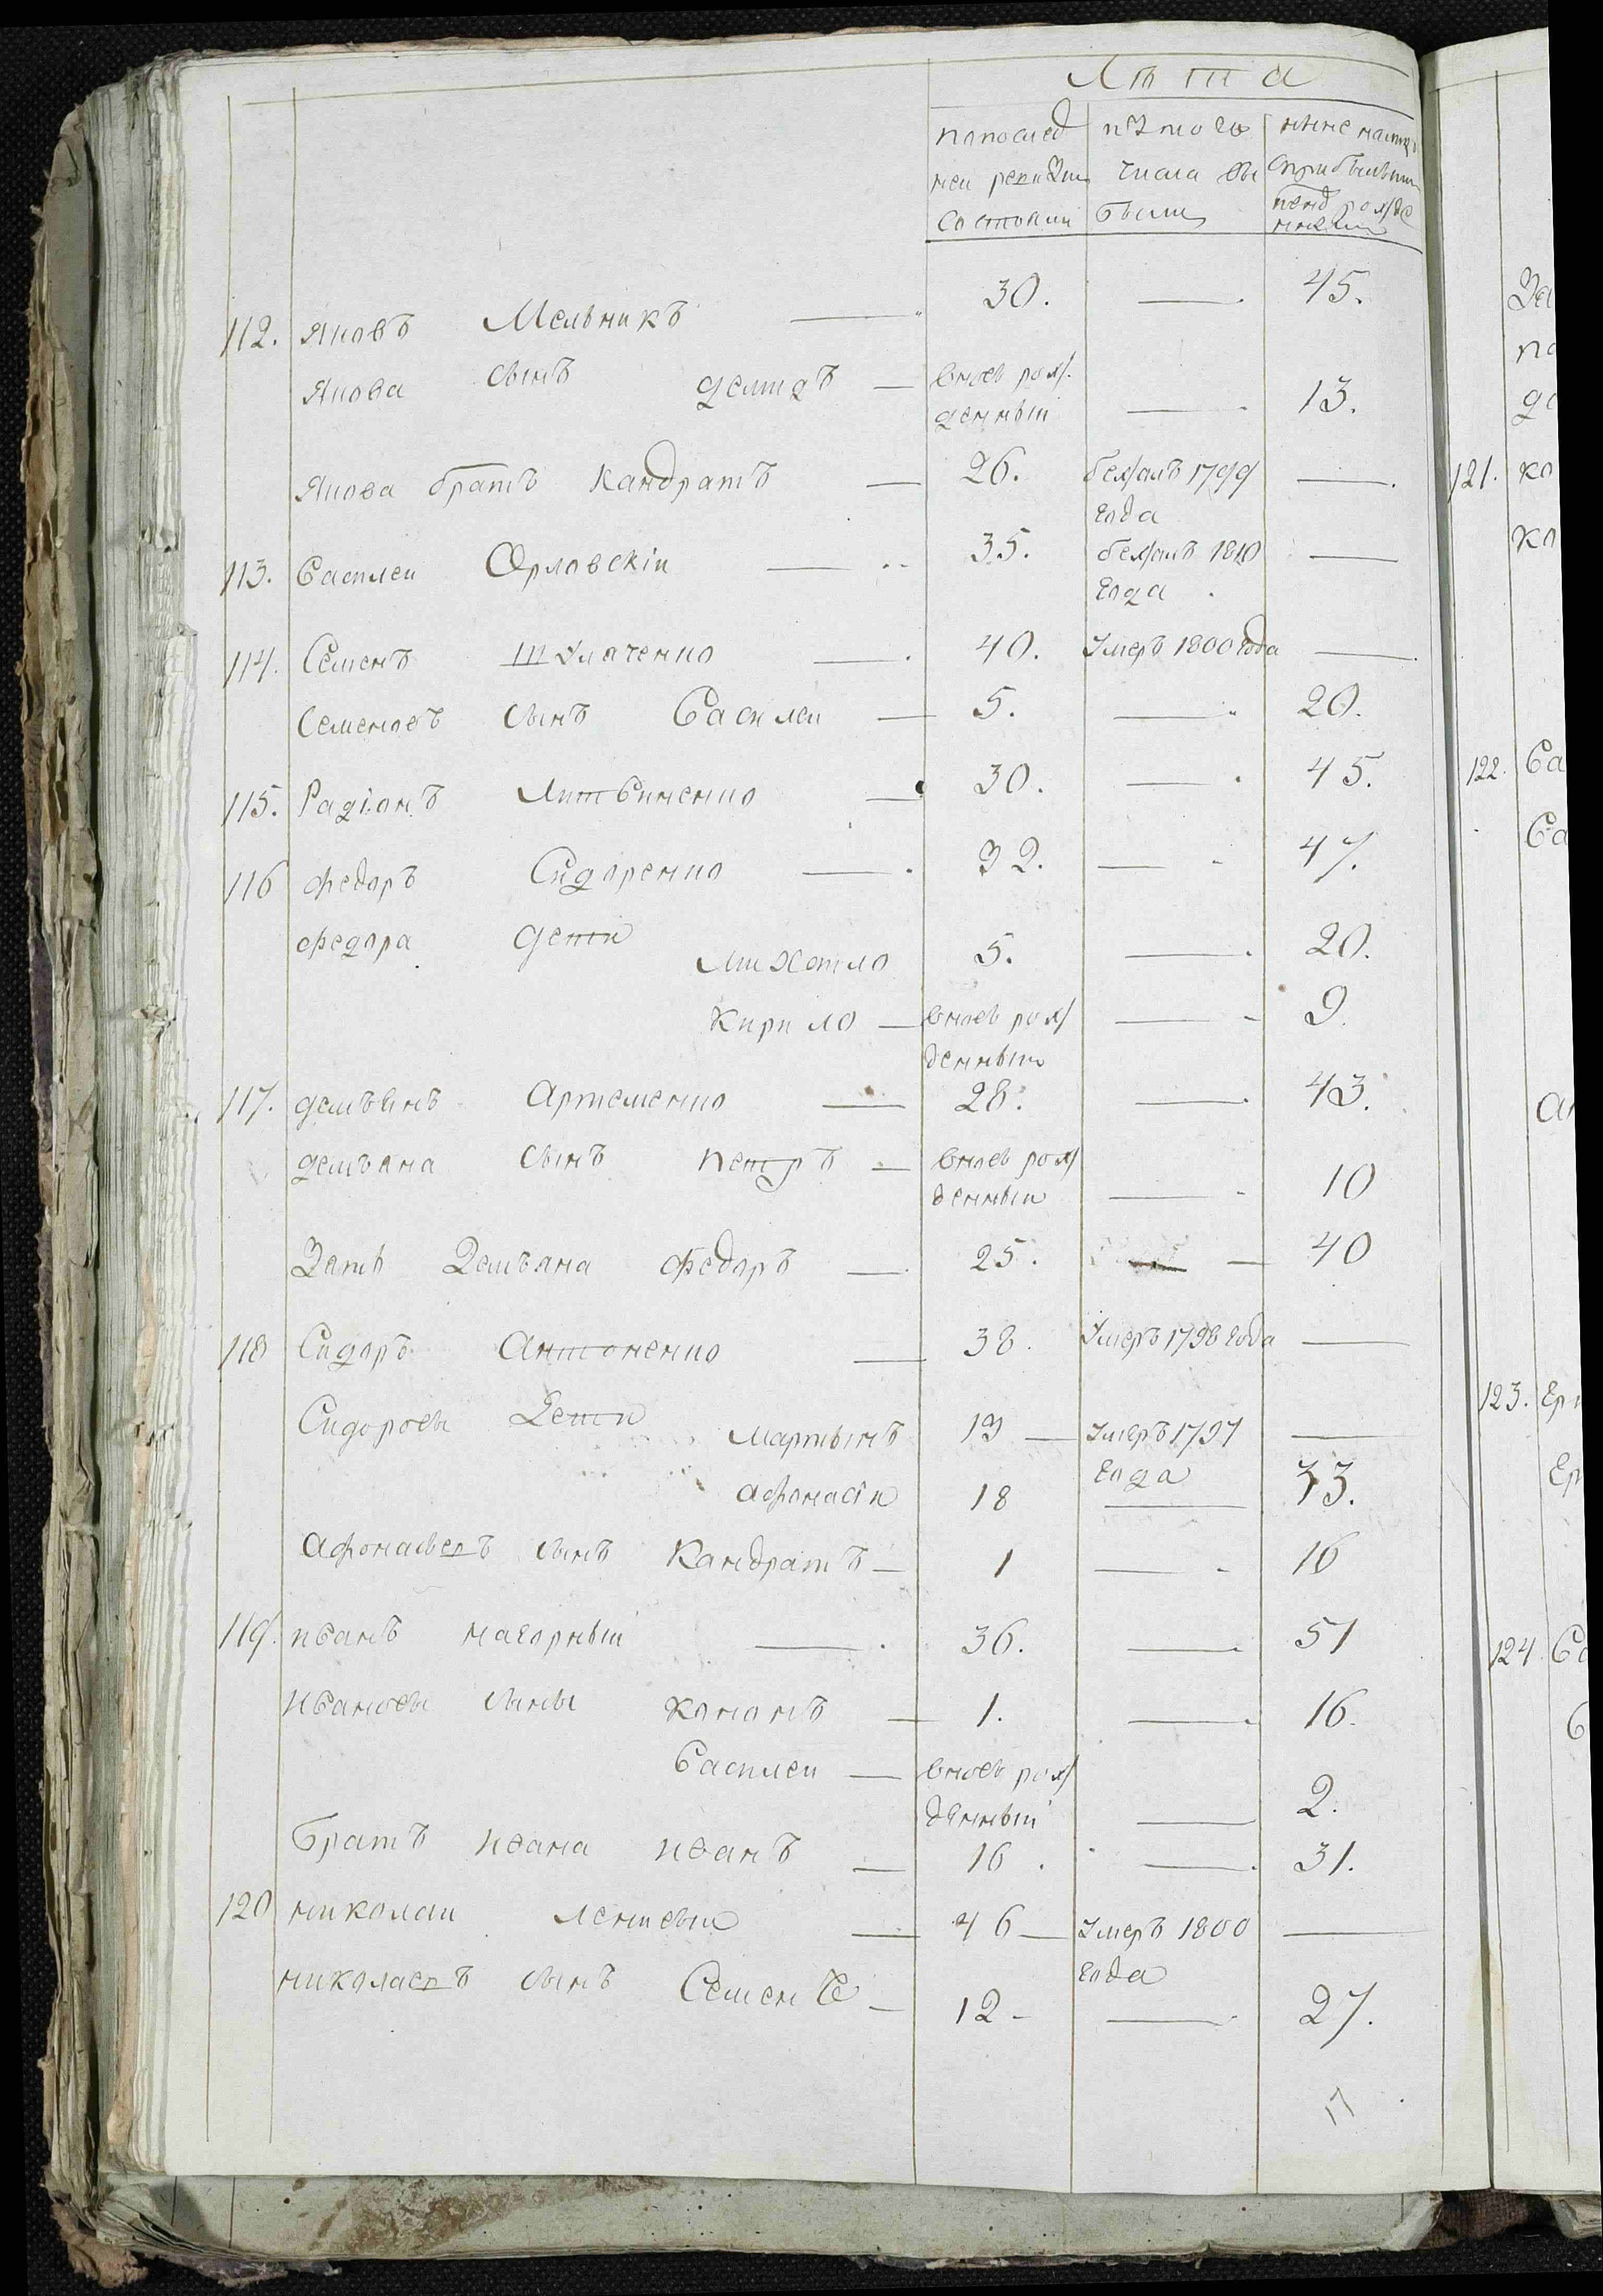 Лѣта
попослед изтого нынѣ налицо
ней ревизии числа вы сприбылыми
состояли были
112. Яковъ Мельникъ 30. — 45.
Якова сынъ демидъ — вновь рож
денный — 13.
Якова братъ Кандратъ — 26. бежалъ 1799 —
года
113. Василеи Орловскiи — 35. бежалъ 1810 —
года
114. Семенъ — 40. Умеръ 1800 года —
Семеновъ сынъ Василеи — 5. — 20.
115. Радiонъ Литвиненко — 30. — 45.
116 Федоръ Сидоренко — 32. — 47.
Федора дети
Михаило 5. — 20.
Кирило — вновь рож — 9.
денный
117. демьянъ Артеменко — 28. — 43.
демьяна сынъ петръ — вновь рож
денный — 10
Зять Демьяна Федоръ — 25. — 40
118 Сидоръ Антоненко — 38. Умеръ 1798 года —
Сидоровы Дети
Мартынъ 19 — Умеръ 1797 —
года
афонасiи 18 — 33.
афонасьевъ сынъ Кандратъ — 1 — 16
119. иванъ нагорный — 36. — 51
ивановы сыны кононъ — 1. — 16.
Василеи — вновь рож
денный — 2.
братъ ивана иванъ — 16. — 31.
120 николаи — 46 — Умеръ 1800 —
года
николаевъ сынъ Семенъ — 12 — — 27.
17
За
по
де
121. ко
ко
122. Ва
Ва
123. Ер
Ер
124. Ва